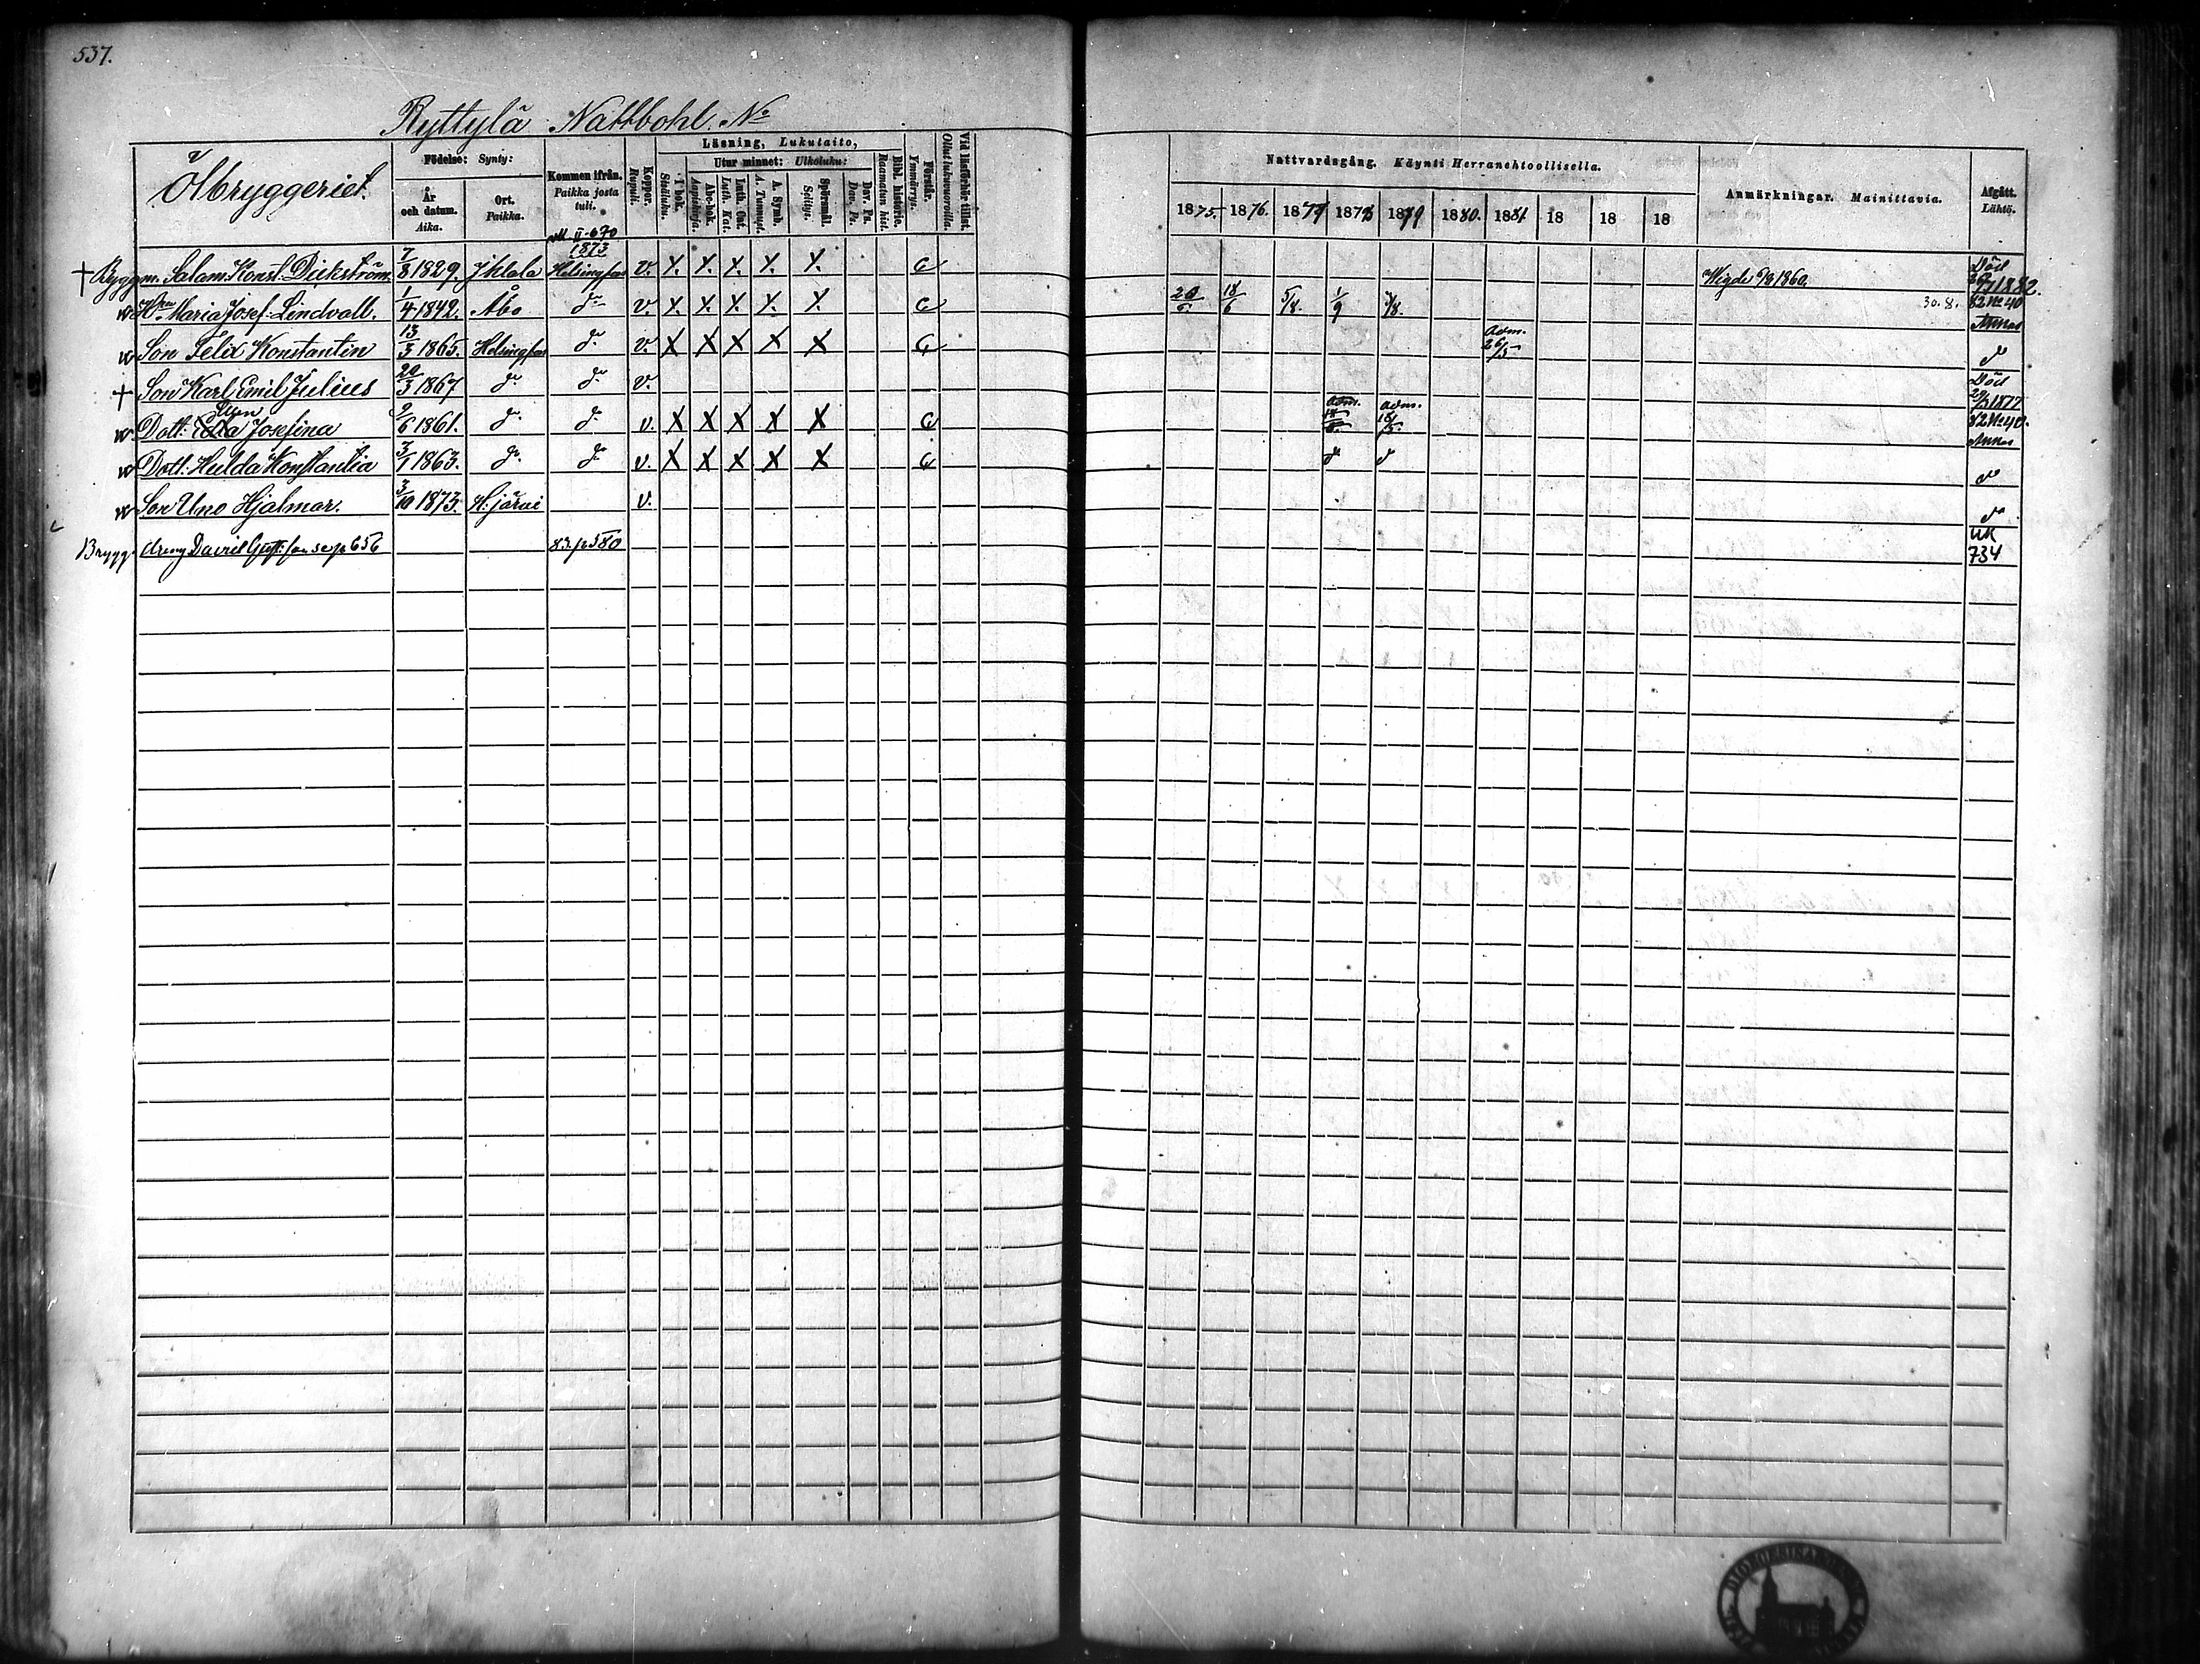 537.
Ryttylä Nattbohl. No
Ölbryggeriet.
Födelse: Synty:
År och datum. Aika.
Ort. Paikka.
Kommen ifrån. Paikka josta tuli.
Koppor. Rupuli.
Läsning, Lukutaito,
I bok. Sisäluku.
Utur minnet: Ulkoluku:
Abc-bok. Aapiskirja.
Luth. Cat. Luth. Kat.
A. Symb. A. Tunnust.
Spörsmål. Selitys.
Dav. Ps. Dav. Ps.
Bibl. historie. Raamatun hist.
Förstår. Ymmärrys.
Vid läsförhör tillst. Ollut lukuvuoroilla.
Nattvardsgång. Käynti Herranehtoollisella.
1875. 1876. 1877 1878 1879 1880. 1881 18 18 18
Anmärkningar. Mainittavia.
Afgått. Lähtö.
M. II. 670 1873
† Bryggm. Salam. Konst. Dickström. 7/8 1829. Helsingfors v. X. X. X. X. X. Wigde 1860. Död 1882.
Hu Maria Josef. Lindvall. 1/4 1842. Åbo do v. X. X. X. X. X. 20/6 18/6 5/8. 1/9 30.8. 82 No 40
Son Felix Konstantin 13/3 1865. Helsingfors do v. X X X X X Adm. 26/5 d
† Son Karl Emil Julius 20/3 1867. do do v. Död 1877
Dott: Josefina 2/6 1861. do do v. X X X X X adm. adm. 82 No 40.
Dott: Hulda Konstantia 3/1 1863. do do v. X X X X X d d d
Son Uno Hjalmar. 3/10 1873. H:järvi v. d
Brygg. dreng David se p 656 83. p 580 UK 734